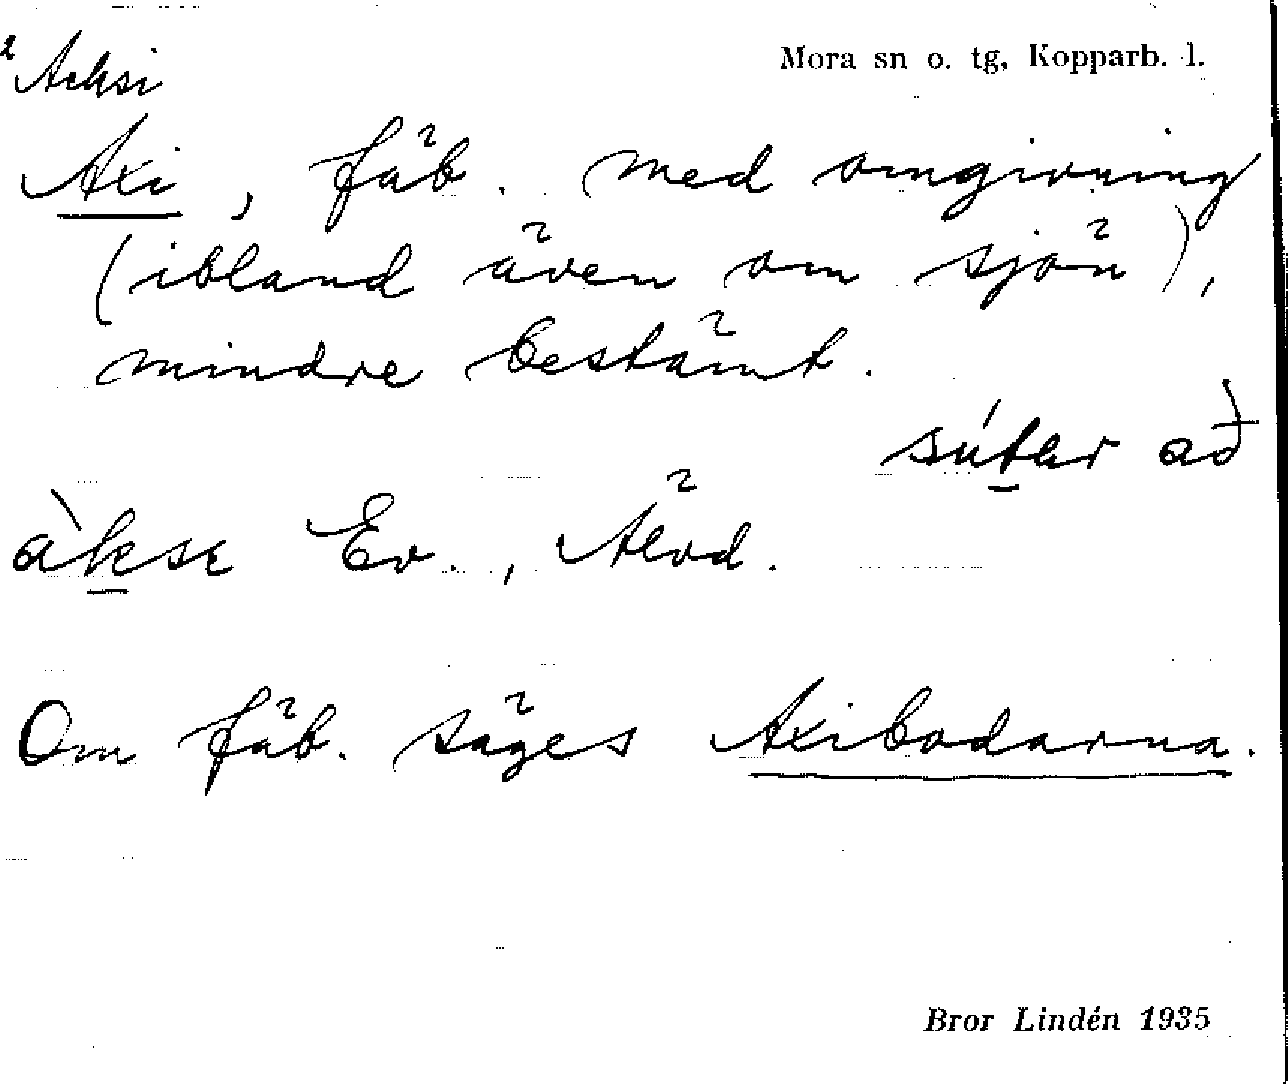 Acksi
Mora sn o. tg, Kopparb. l.
Axi, fäb. med omgivning
(ibland även om sjön),
mindre bestämt.
sútær að
àkse Ev., Älvd.
Om fäb. säges Axibodarna.
Bror Lindén 1935